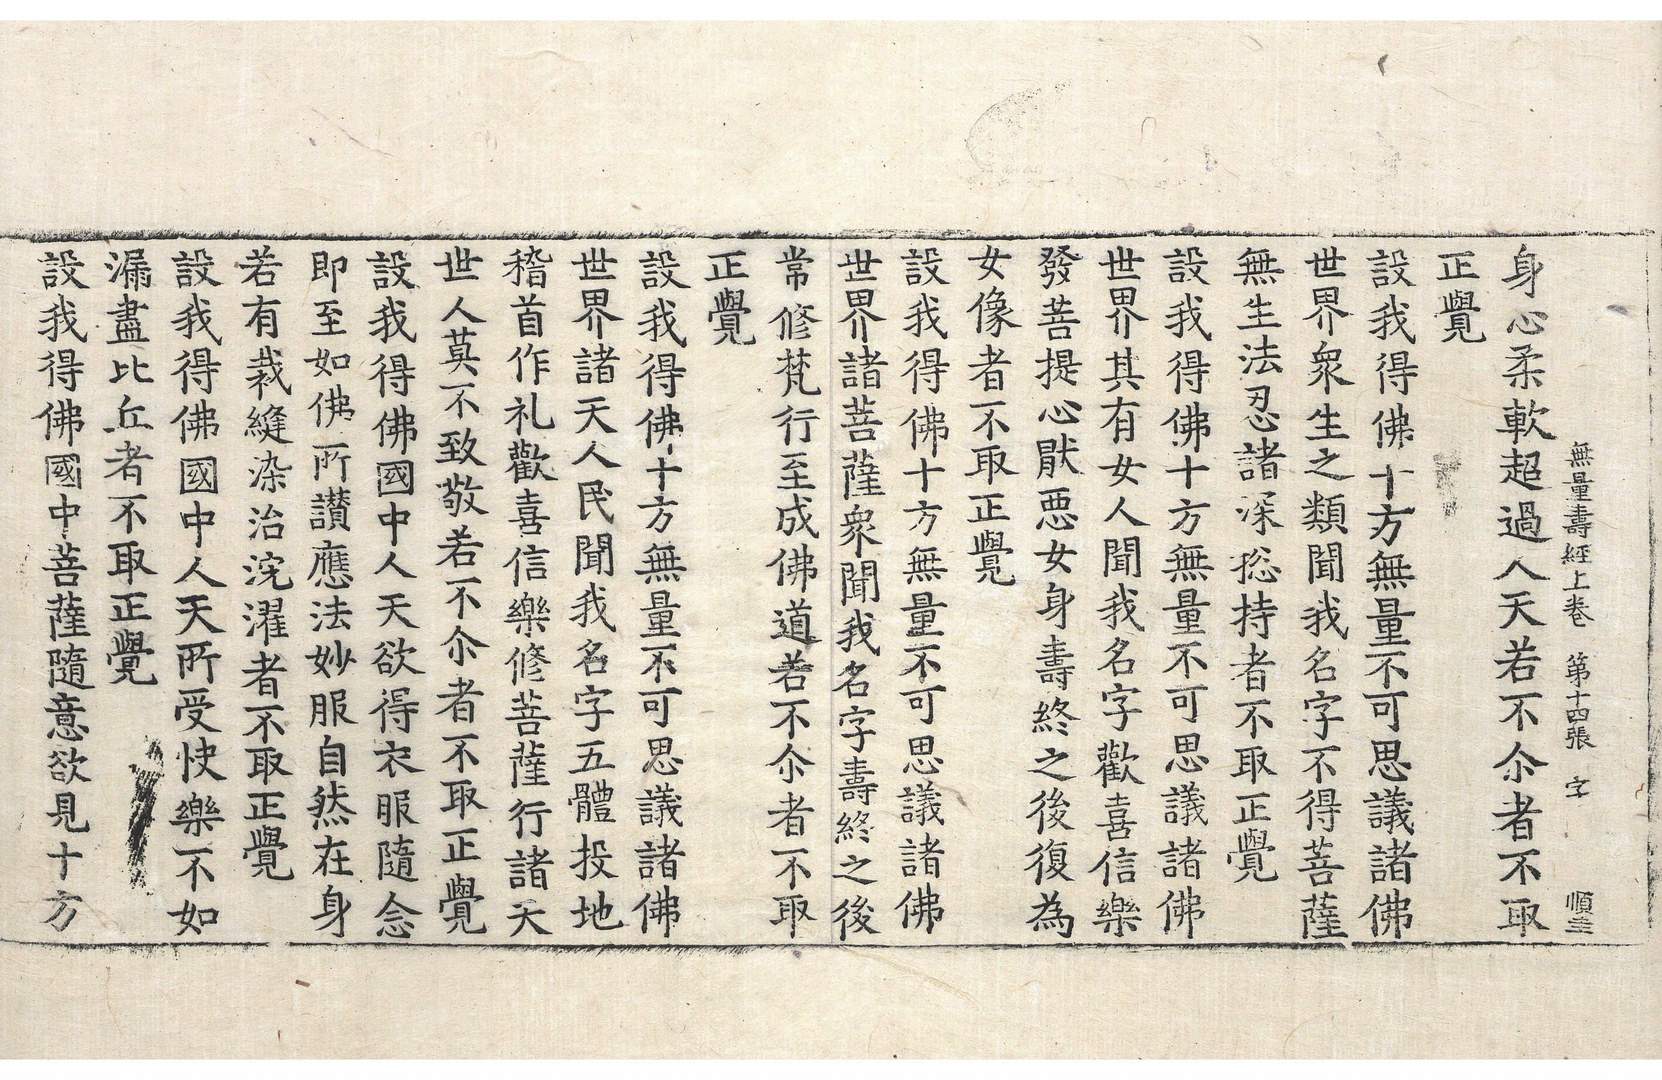 無量壽經上卷　第十四張　字　順圭
身心柔軟超過人天若不尒者不取
正覺
設我得佛十方無量不可思議諸佛
世界衆生之類聞我名字不得菩薩
無生法忍諸深捴持者不取正覺
設我得佛十方無量不可思議諸佛
世界其有女人聞我名字歡喜信樂
發菩提心猒惡女身壽終之後復為
女像者不取正覺
設我得佛十方無量不可思議諸佛
世界諸菩薩衆聞我名字壽終之後
常修梵行至成佛道若不尒者不取
正覺
設我得佛十方無量不可思議諸佛
世界諸天人民聞我名字五體投地
稽首作礼歡喜信樂修菩薩行諸天
世人莫不致敬若不尒者不取正覺
設我得佛國中人天欲得衣服隨念
即至如佛所讃應法妙服自然在身
若有裁縫染治浣濯者不取正覺
設我得佛國中人天所受快樂不如
漏盡比丘者不取正覺
設我得佛國中菩薩隨意欲見十方